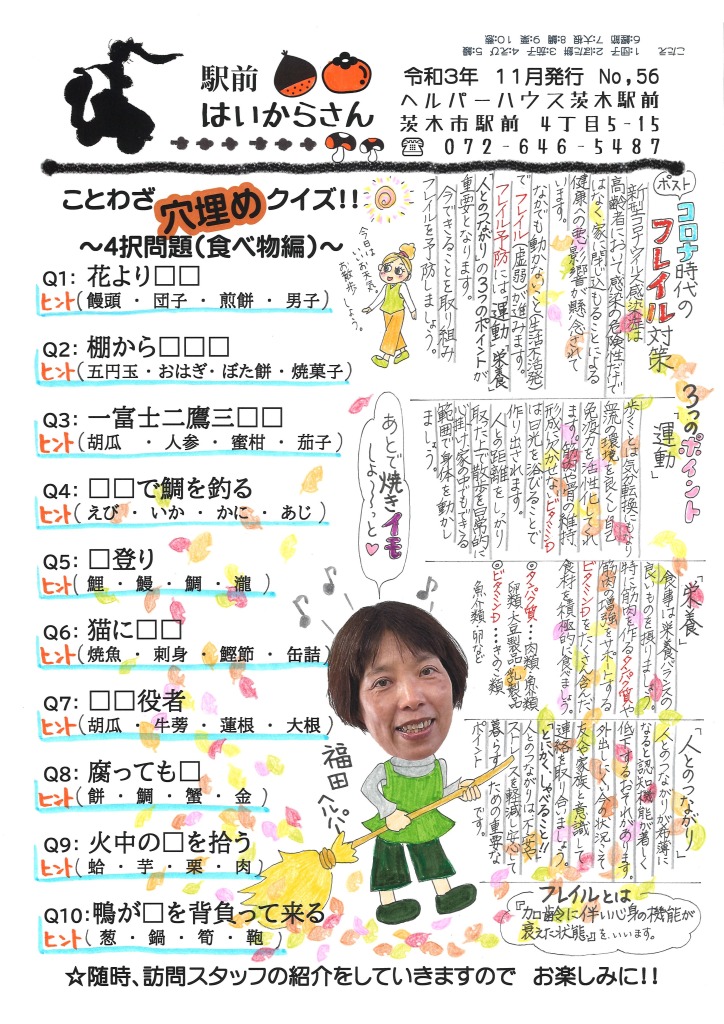 こたえ 1:団子 2:ぼた餅 3:茄子 4:えび 5:鰻
6:鰹節 7:大根 8:鯛 9:栗 10:葱
駅前
はいからさん
令和3年 11月発行 No,56
ヘルパーハウス茨木駅前
茨木市駅前 4丁目5-15
☎ 072-646-5487
ことわざ穴埋めクイズ!!
～4択問題(食べ物編)～
Q1: 花より□□
ヒント(饅頭 ・ 団子 ・ 煎餅 ・ 男子)
Q2: 棚から□□□
ヒント(五円玉・おはぎ・ぼた餅・焼菓子)
Q3: 一富士二鷹三□□
ヒント(胡瓜 ・ 人参 ・ 蜜柑 ・ 茄子)
Q4: □□で鯛を釣る
ヒント(えび ・ いか ・ かに ・ あじ)
Q5: □登り
ヒント(鯉 ・ 鰻 ・ 鯛 ・ 瀧)
Q6: 猫に□□
ヒント(焼魚 ・ 刺身 ・ 鰹節 ・ 缶詰)
Q7: □□役者
ヒント(胡瓜 ・ 牛蒡 ・ 蓮根 ・ 大根)
Q8: 腐っても□
ヒント(餅 ・ 鯛 ・ 蟹 ・ 金)
Q9: 火中の□を拾う
ヒント(蛤 ・ 芋 ・ 栗 ・ 肉)
Q10:鴨が□を背負って来る
ヒント(葱 ・ 鍋 ・ 筍 ・ 鞄)
今日は
いいお天気
お散歩
しよう。
あとで焼き
イモ
しよ～っと
福田ヘルパー
ポスト
コロナ時代の
フレイル対策
新型コロナウイルス感染症は
高齢者において感染の危険性だけで
はなく家に閉じ込もることによる
健康への悪影響が懸念されて
います。
なかでも動かないこと(生活不活発)
でフレイル(虚弱)が進みます。
フレイル予防には「運動」「栄養」
「人とのつながり」の3つのポイントが
重要となります。
今できることを取り組み
フレイルを予防しましょう。
3つのポイント
「運動」
歩くことは気分転換にもなり
血流の環境を良くし自己
免疫力を活性化してくれ
ます。筋肉や骨の維持
形成に欠かせないビタミンD
は日光を浴びることで
作り出されます。
人との距離をしっかり
取った上で散歩を日常的に
心掛け家の中でもできる
範囲で身体を動かし
ましょう。
「栄養」
食事は栄養バランスの
良いものを摂りましょう。
特に筋肉を作るタンパク質や
筋肉の増強をサポートする
ビタミンDをたくさん含んだ
食材を積極的に食べましょう。
◎タンパク質…肉類魚類
卵類大豆製品乳製品
◎ビタミンD…きのこ類
魚介類卵など
「人とのつながり」
人とのつながりが希薄に
なると認知機能が著しく
低下するおそれがあります。
外出しにくい今の状況こそ
友人や家族と意識して
連絡を取り合いましょう。
「とにかくしゃべること!!」
人とのつながりは不安や
ストレスを軽減し安心して
暮らすための重要な
ポイントです。
フレイルとは
『加齢に伴い心身の機能が
衰えた状態』を、いいます。
☆随時、訪問スタッフの紹介をしていきますので お楽しみに!!